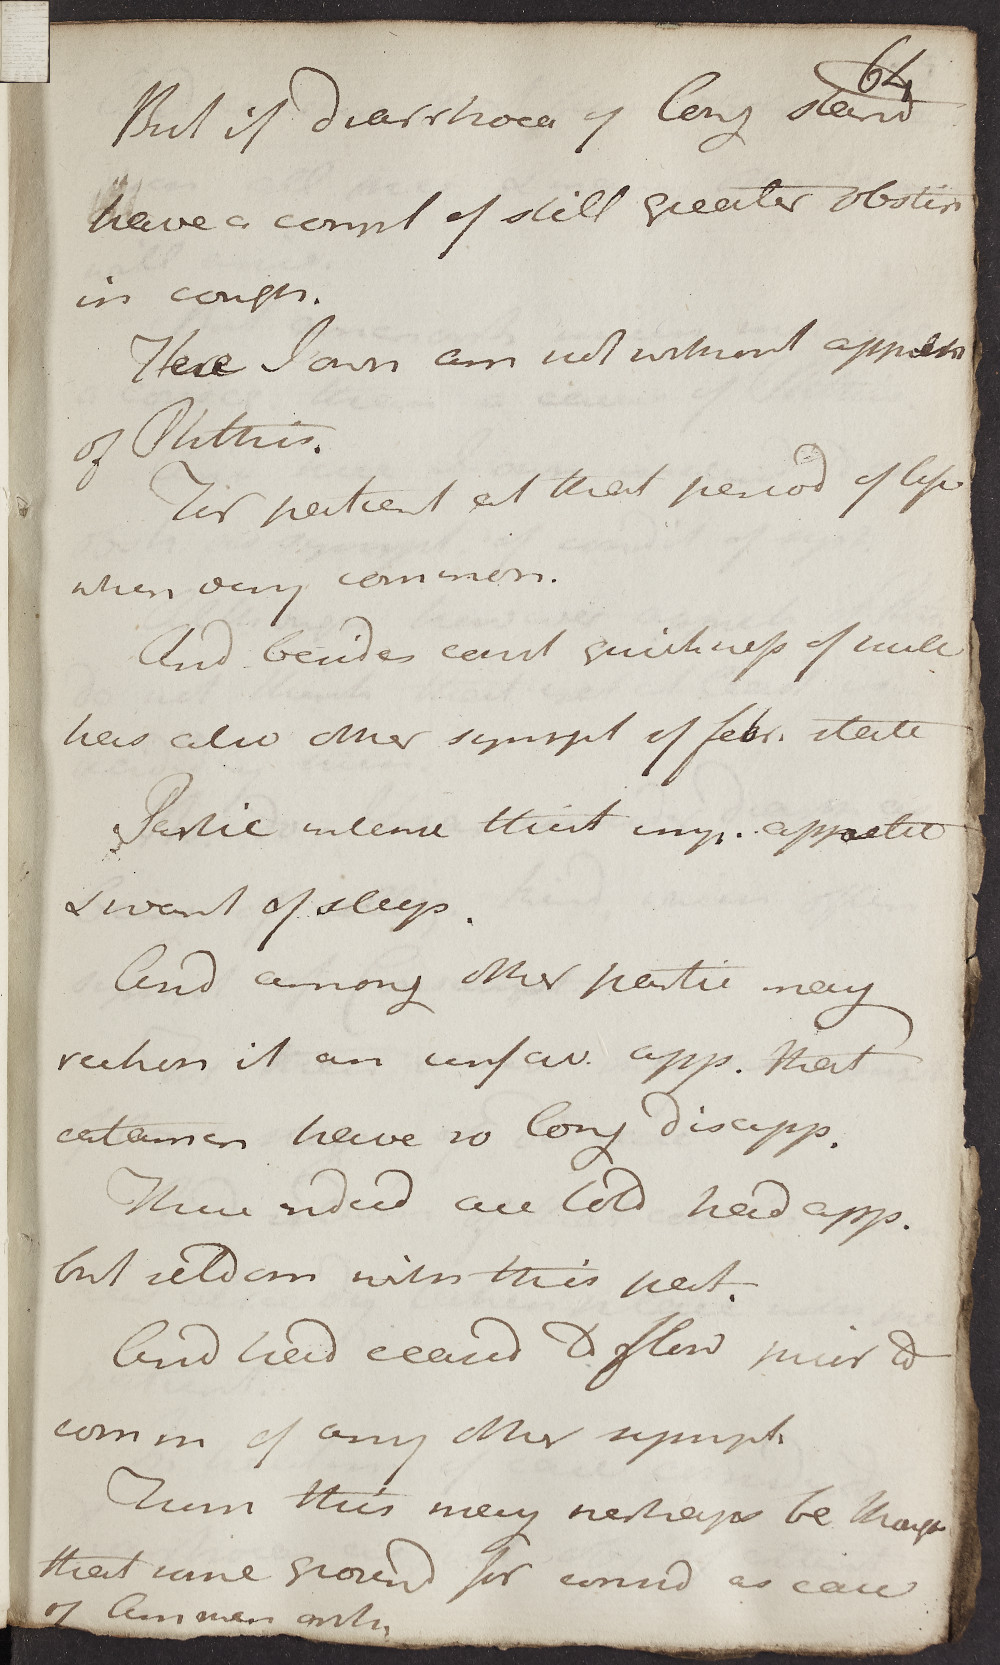 64
But if Diarrhoea of long stand
have a compl of still greater obstin
in cough.
Here I own am not without appreh
of Phthis.
For patient at that period of life
when very common.
And besides const quickness of pulse
has also other sympt of febr. state
Partic intense thirst imp. appetite
& want of sleep.
And among other partic may
reckon it an unfav. app. that
catamen have so long disapp.
These indeed are told had app.
but seldom with this pat.
And had ceased to flow prior to
comm of any other sympt.
From this may perhaps be though
that some ground for consid as case
of Amenorrh.